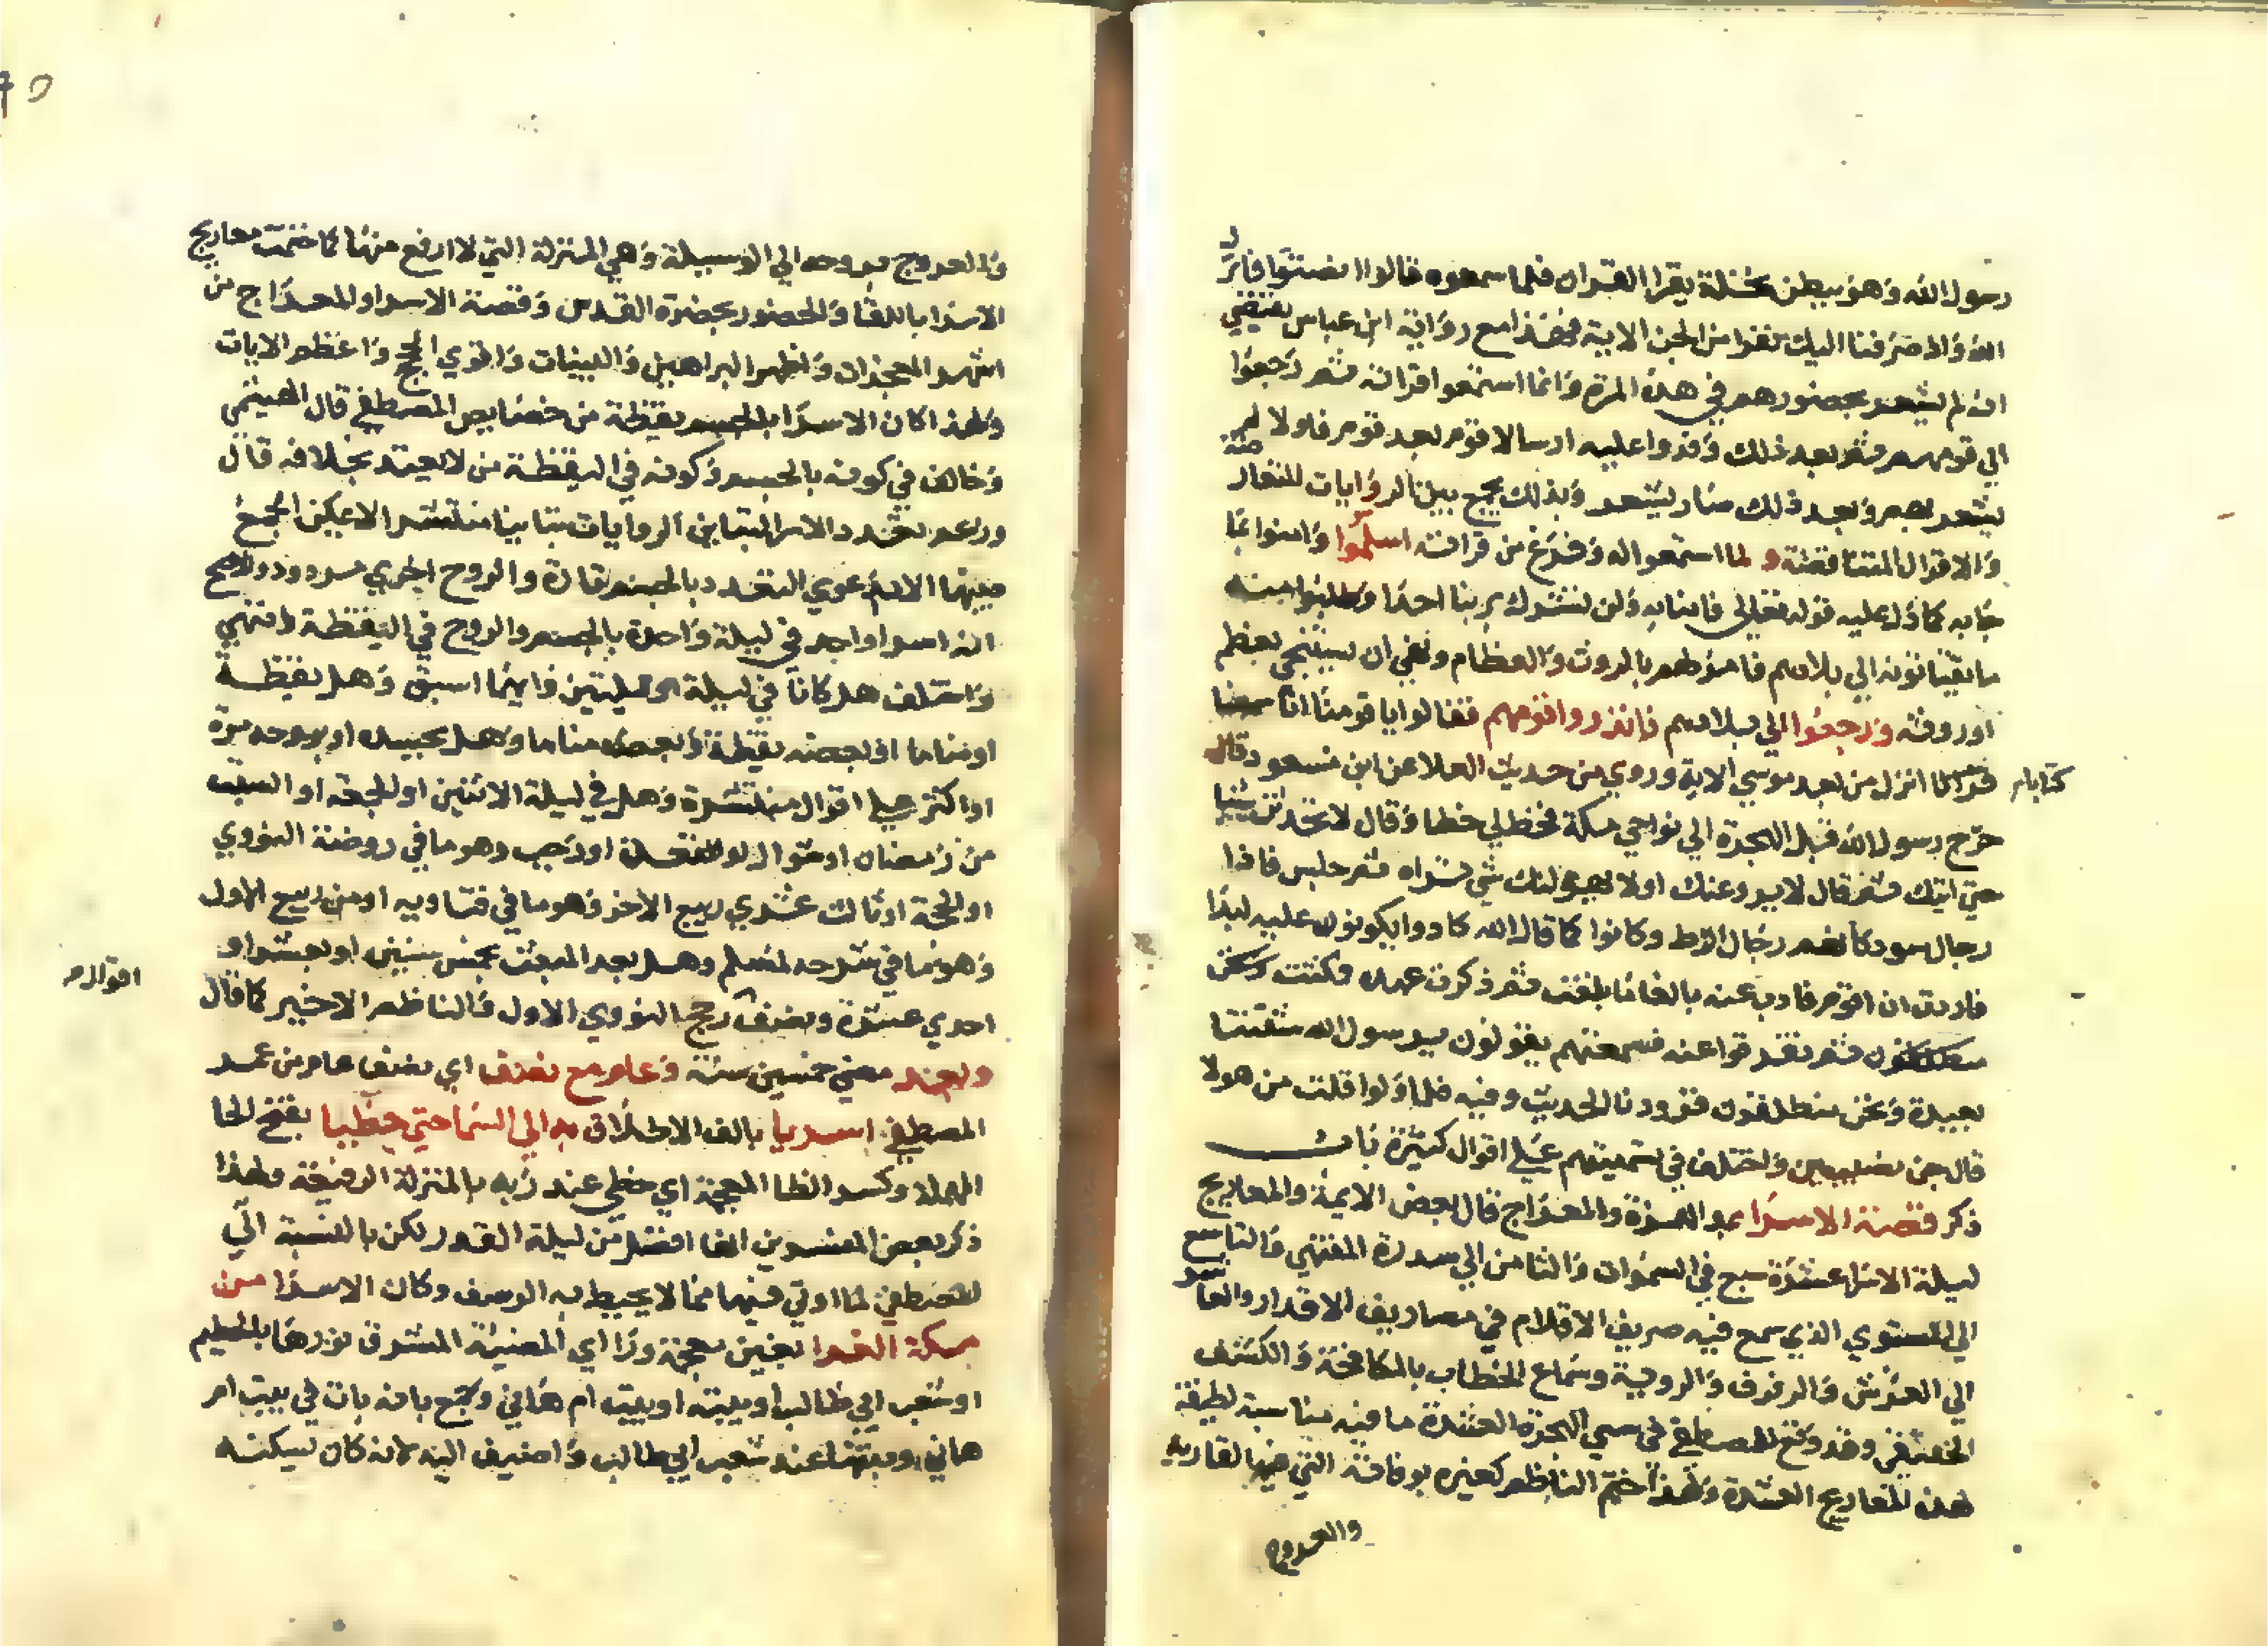 رسول الله وهو ببطن نخلة يقرا القران فلما سمعوه قالوا انصتوا فانزل
الله واذ صرفنا اليك نفرا من الجن الاية فهذا مع رواية ابن عباس يقتضي
انه لم يشعر بحضورهم في هذه المرة وانما استمعوا قراته ثم رجعوا
الي قومهم ثم بعد ذلك وفدوا عليه ارسالا قوم بعد قوم فاولا لم
يشعر بهم وبعد ذلك صار يشعر وبذلك يجمع بين الروايات
والاقوال المتناقضة و لما استمعوا له وفرغ من قراته اسلموا وامنوا بما
جا به كما دل عليه قوله تعالي فامنا به ولن نشرك بربنا احدا وطلبوا منه
ما يقتاتونه الي بلادهم فامرهم بالروث والعظام ونهي ان يستنجي بعظم
او روثه ورجعوا الي بلادهم فانذروا قومهم فقالوا يا قومنا انا سمعنا
كتابا انزل من بعد موسي الاية وروي من حديث العلا عن ابن مسعود قال
خرج رسول الله قبل الهجرة الي نواحي مكة فخط لي خطا وقال لا تحدثن شيا
حتي اتيك ثم قال لا يروعنك اولا يهولنك شي تراه ثم جلس فاذا
رجال سود كانهم رجال الزط وكانوا كما قال الله كادوا يكونون عليه لبدا
فاردت ان اقوم فادب عنه بالغا ما بلغت ثم ذكرت عهده فمكثت
ثم تفرقوا عنه فسمعتهم يقولون يرسول الله شقتنا
بعيدة ونحن منطلقون فزودنا الحديث وفيه فلما ولوا قلت من هولا
قال جن نصيبين واختلف في تسميتهم علي اقوال كثيرة باب
ذكر قصة الاسرا والمعراج قال بعض الايمة والمعاريج
ليلة الاسرا عشرة سبع في السموات والثامن الي سدرة المنتهي والتاسع
الي المستوي الذي سمع فيه صريف الاقلام في تصاريف الاقدار والعاشر
الي العرش والرفرف والروية وسماع الخطاب بالمكافحة والكشف
الحقيقي وقد وقع للمصطفي في سني الهجرة العشرة ما فيه مناسبة لطيفة
لهذه المعاريج العشرة ولهذا ختم الناظم كغيره بوفاته التي فيها لقا ربه
والعروج
والعروج بروحه الي الوسيلة وهي المنزلة التي لا ارفع منها كما ختمت معاريج
الاسرا باللقا والحضور بحضرة القدس وقصة الاسرا والمعراج من
اشهر المعجزات واظهر البراهين والبينات واقوي الحجج واعظم الايات
ولهذا كان الاسرا بالجسم يقظة من خصايص المصطفي قال الهيتمي
وخالف في كونه بالجسم وكونه في اليقظة من لا يعتد بخلافه قال
وزعم تعدد الاسرا لتباين الروايات تباينا منتشرا لا يمكن الجمع
بينها الا بدعوي التعدد بالجسم تارة والروح اخري مردود والاصح
انه اسرا واحد في ليلة واحدة بالجسم والروح في اليقظة انتهي
واختلف هل كانا في ليلة او ليلتين وايهما اسبق وهل يقظة
او مناما او بعضه يقظة وبعضه مناما وهل بجسده او بروحه مرة
او اكثر علي اقوال منتشرة وهل في ليلة الاثنين او الجمعة او السبت
من رمضان او شوال او القعدة او رجب وهو ما في روضة النووي
او الحجة او ثالث عشري ربيع الاخر وهو ما في فتاويه او من ربيع الاول
وهو ما في شرحه لمسلم وهل بعد المبعث بخمس سنين او بعشر او
احدي عشرة ونصف رجح النووي الاول والناظم الاخير كما قال اقوال
وبعد مضي خمسين سنة وعام مع نصف اي نصف عام من عمر
المصطفي اسريا بالف الاطلاق به الي السما حتي حظيا بفتح الحا
المهملة وكسر الظا المعجمة اي حظي عند ربه بالمنزلة الرفيعة ولهذا
ذكر بعض المفسرين انها افضل من ليلة القدر لكن بالنسبة الي
المصطفي لما اوتي فيها مما لا يحيط به الوصف وكان الاسرا من
مكة الغرا بغين معجمة ورا اي المضيية المشرق نورها بالحطيم
او شعب ابي طالب او بيته او بيت ام هاني وجمع بانه بات في بيت ام
هاني وبيتها عند شعب ابي طالب واضيف اليه لانه كان يسكنه